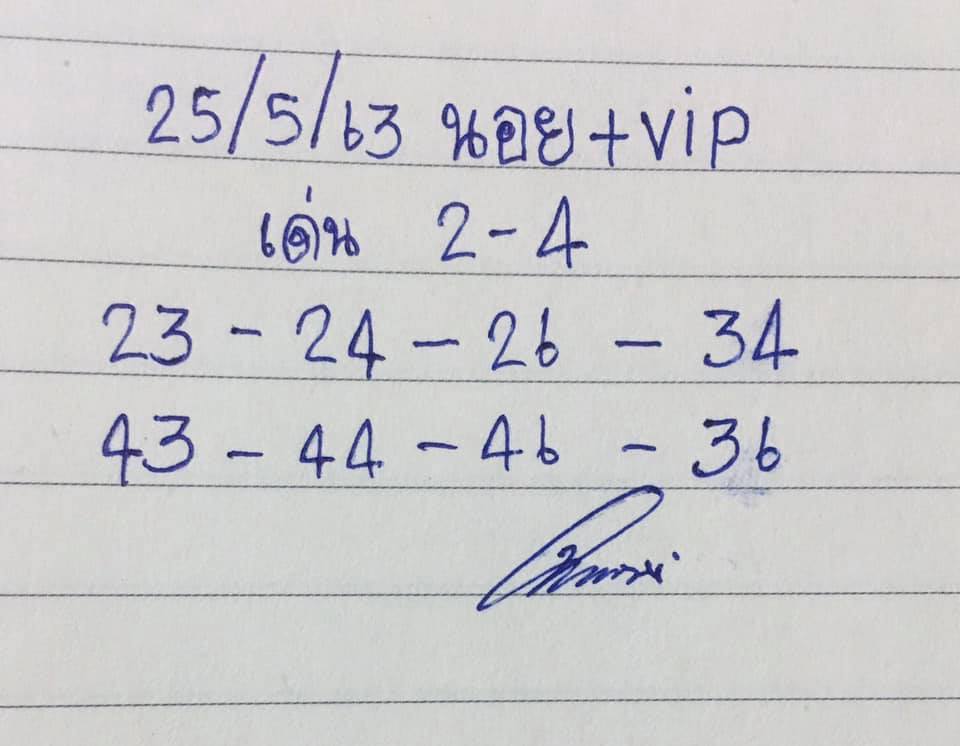 25/5/63 นอย+vip
เด่น 2-4
23 - 24 - 26 - 34
43 - 44 - 46 - 36